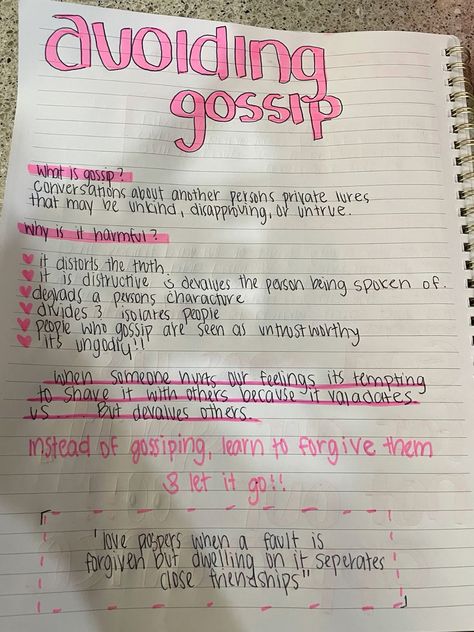 avoiding
gossip
what is gossip?
conversations about another persons private lives
that may be unkind, disapproving, or untrue.
why is it harmful?
it distorts the truth.
it is distructive & devalues the person being spoken of.
degrads a persons charactore
divides & isolates people
people who gossip are seen as untrustworthy
it's ungodly!!
when someone hurts our feelings its tempting
to share it with others because it valadates
us... But devalues others.
instead of gossiping, learn to forgive them
& let it go!!
"love prospers when a fault is
forgiven but dwelling on it seperates
close friendships"